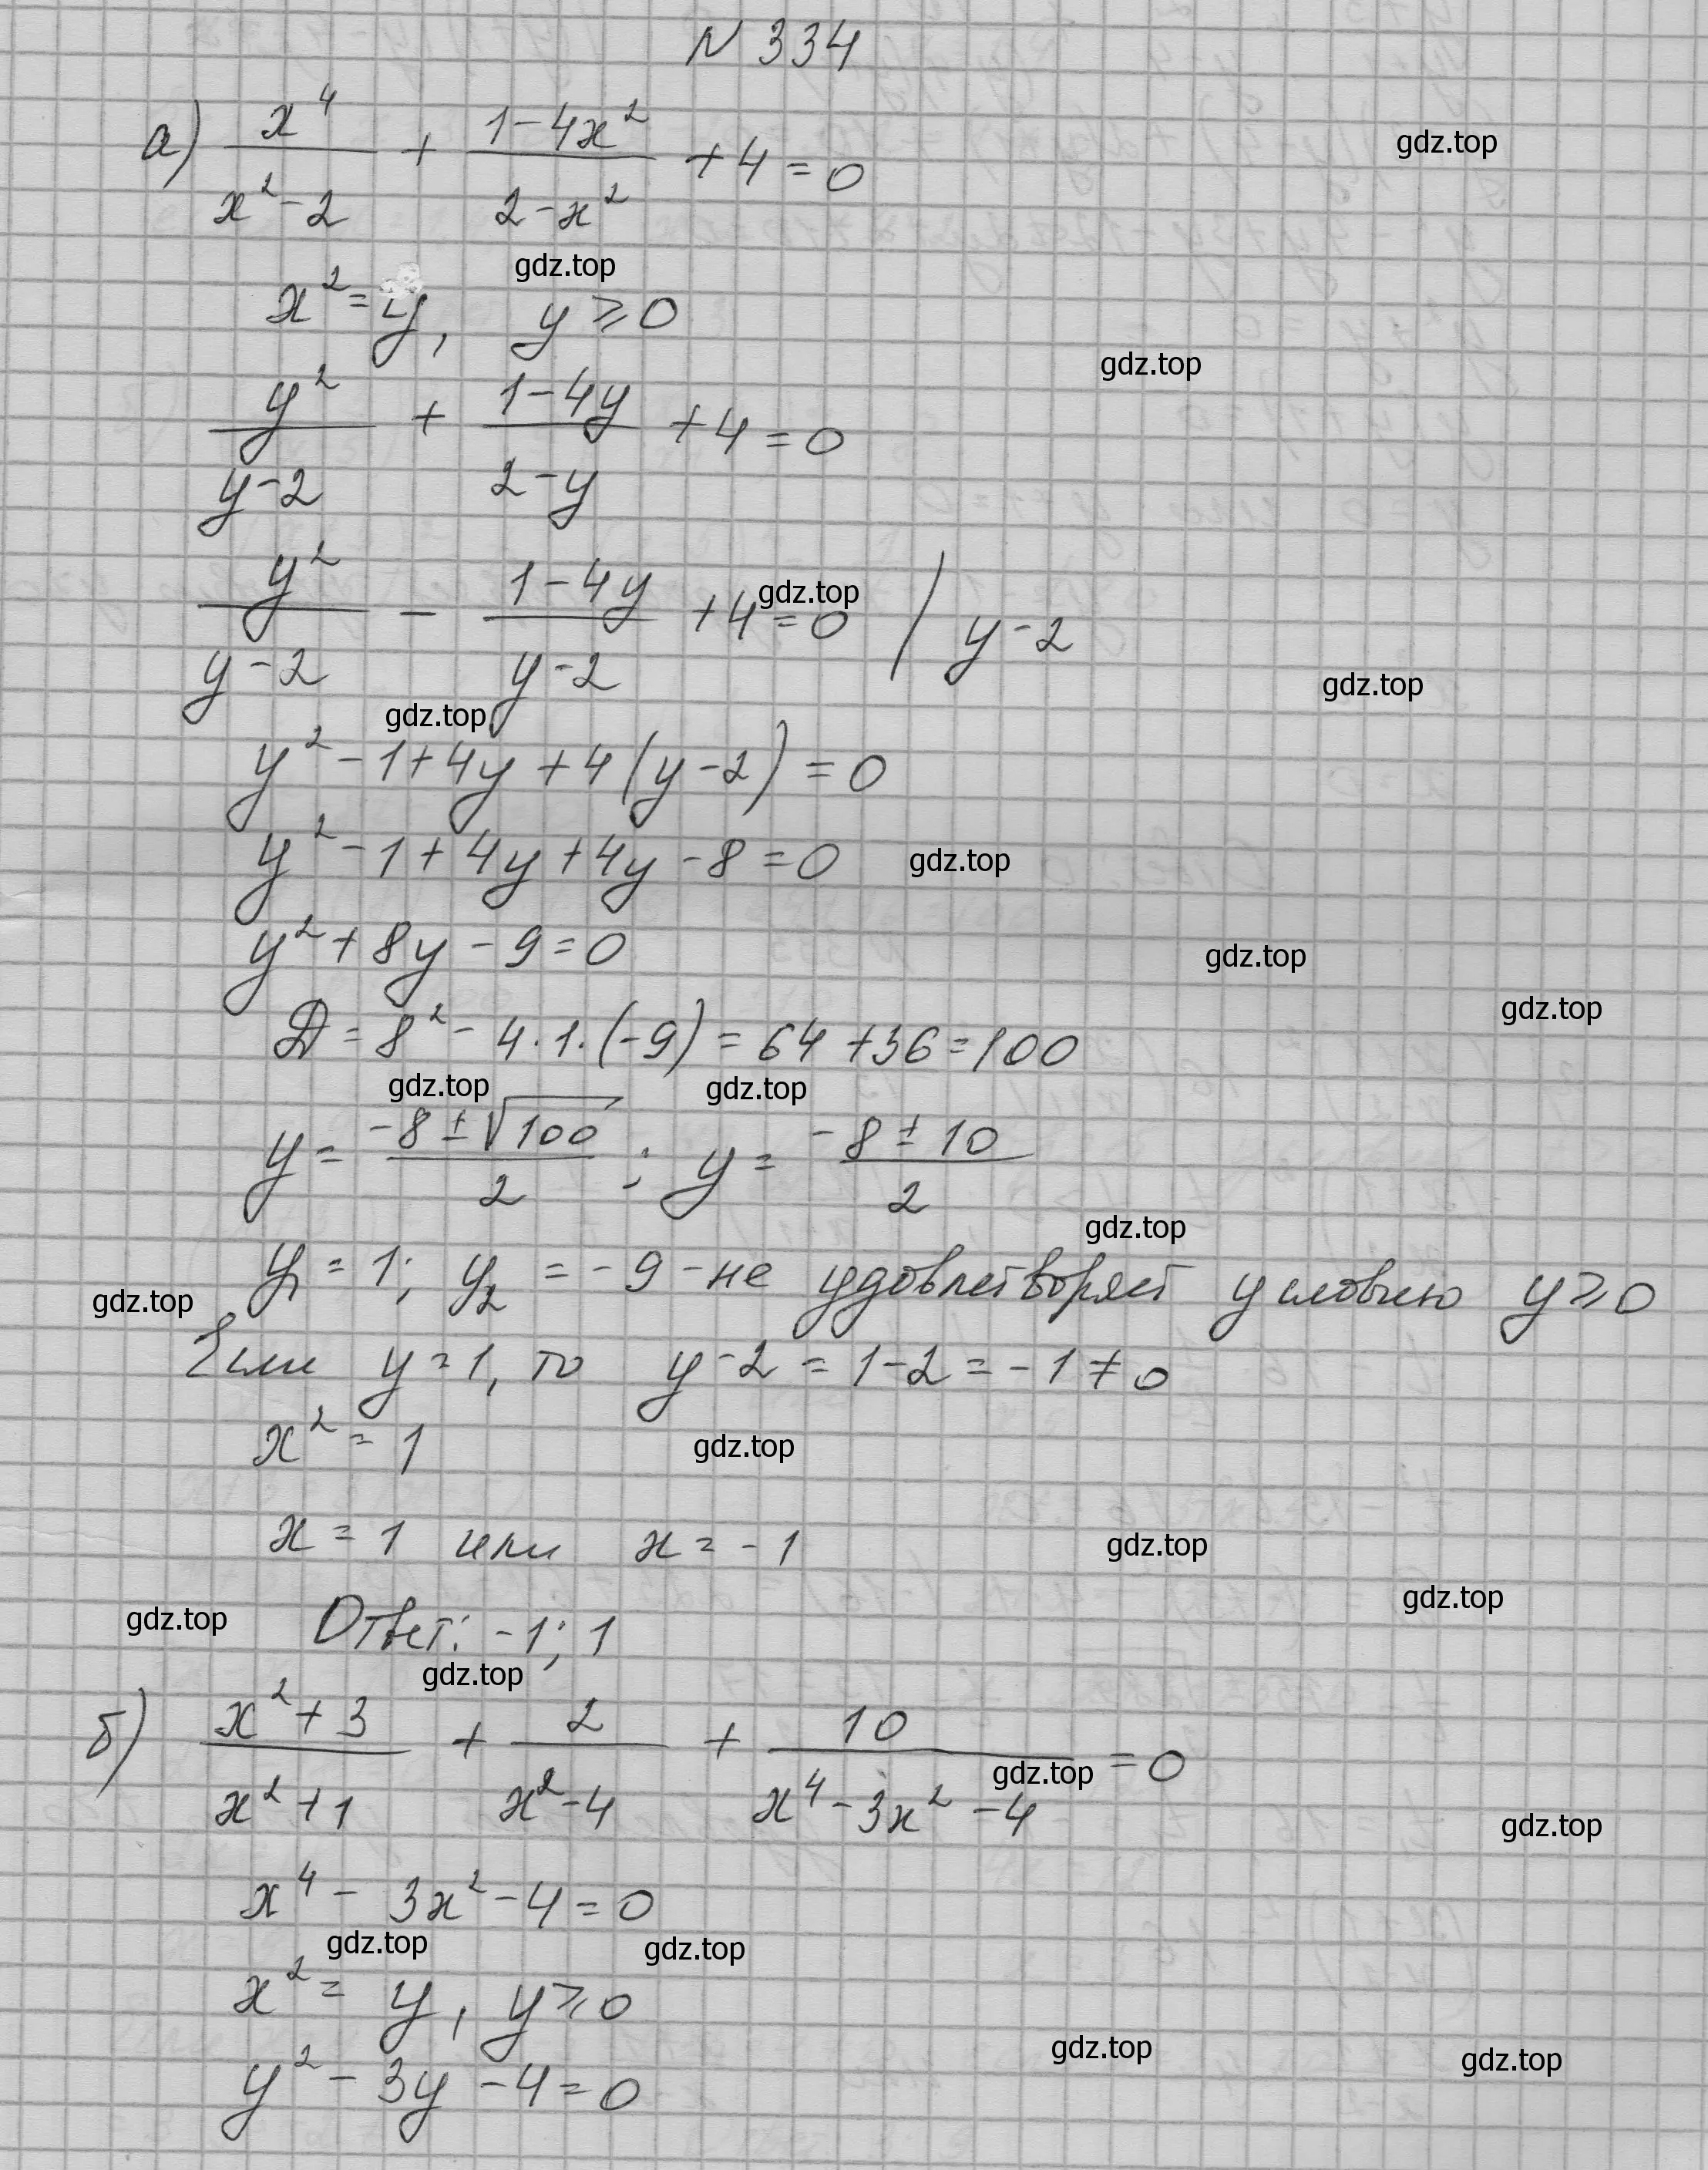 N 334
а) x⁴/(x²-2) + (1-4x²)/(2-x²) + 4 = 0
gdz.top
x² = y, y ⩾ 0
gdz.top
gdz.top
y²/(y-2) + (1-4y)/(2-y) + 4 = 0
y²/(y-2) - (1-4y)/(y-2) + 4 = 0 / y-2
gdz.top
gdz.top
gdz.top
y² - 1 + 4y + 4(y-2) = 0
y² - 1 + 4y + 4y - 8 = 0
gdz.top
y² + 8y - 9 = 0
gdz.top
gdz.top
D = 8² - 4·1·(-9) = 64 + 36 = 100
gdz.top gdz.top
y = (-8 ± √100)/2 ; y = (-8 ± 10)/2
gdz.top
y₁ = 1; y₂ = -9 - не удовлетворяет условию y ⩾ 0
gdz.top
Если y = 1, то y - 2 = 1 - 2 = -1 ≠ 0
x² = 1
gdz.top
x = 1 или x = -1
gdz.top
gdz.top
gdz.top
Ответ: -1; 1
gdz.top
б) (x²+3)/(x²+1) + 2/(x²-4) + 10/(x⁴-3x²-4) = 0
gdz.top
gdz.top
x⁴ - 3x² - 4 = 0
gdz.top gdz.top
x² = y, y ⩾ 0
gdz.top gdz.top
y² - 3y - 4 = 0